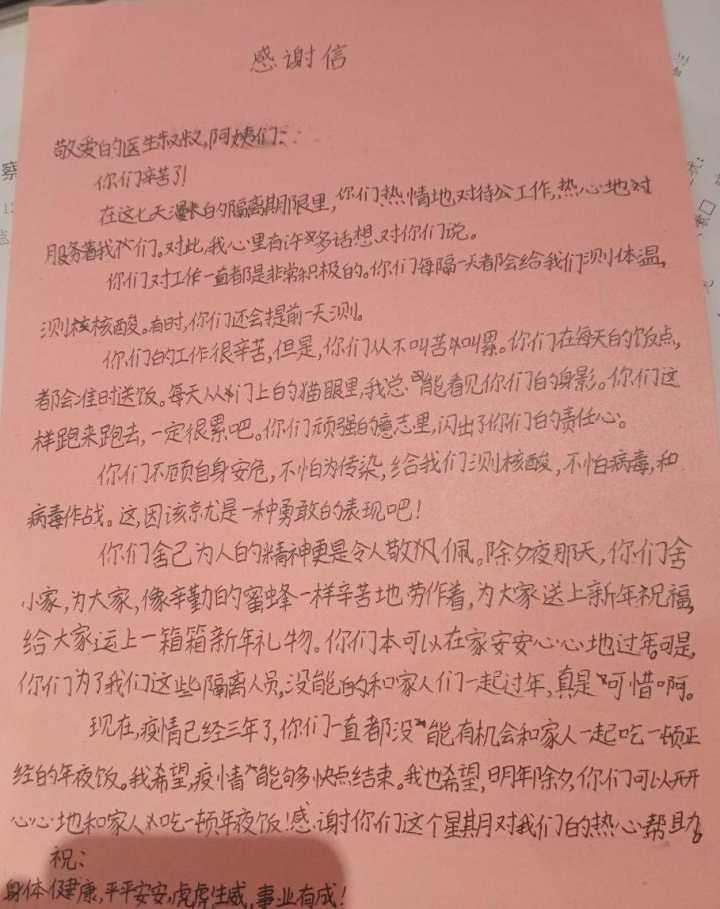 感谢信
敬爱的医生叔叔,阿姨们:
你们辛苦了!
在这七天漫长的隔离期限里,你们热情地,对待公工作,热心地对
服务着我们。对此,我心里有许多话想对你们说。
你们对工作一直都是非常积极的。你们每隔一天都会给我们测体温,
测核核酸。有时,你们还会提前一天测。
你们的工作很辛苦,但是,你们从不叫苦叫累。你们在每天的饭点,
都会准时送饭。每天从门上的猫眼里,我总能看见你们的身影。你们这
样跑来跑去,一定很累吧。你们顽强的意志里,闪出了你们的责任心。
你们不顾自身安危,不怕为传染,给我们测核酸,不怕病毒,和
病毒作战。这,因该就是一种勇敢的表现吧!
你们舍己为人的精神更是令人敬佩。除夕夜那天,你们舍
小家,为大家,像辛勤的蜜蜂一样辛苦地劳作着,为大家送上新年祝福,
给大家运上一箱箱新年礼物。你们本可以在家安安心心地过年。可是,
你们为了我们这些隔离人员,没能的和家人们一起过年,真是可惜啊。
现在,疫情已经三年了,你们一直都没能有机会和家人一起吃一顿正
经的年夜饭。我希望,疫情能够多快点结束。我也希望,明年除夕,你们可以开开
心心地和家人吃一顿年夜饭!感谢你们这个星期对我们的热心帮助。
祝:
身体健康,平平安安,虎虎生威,事业有成!